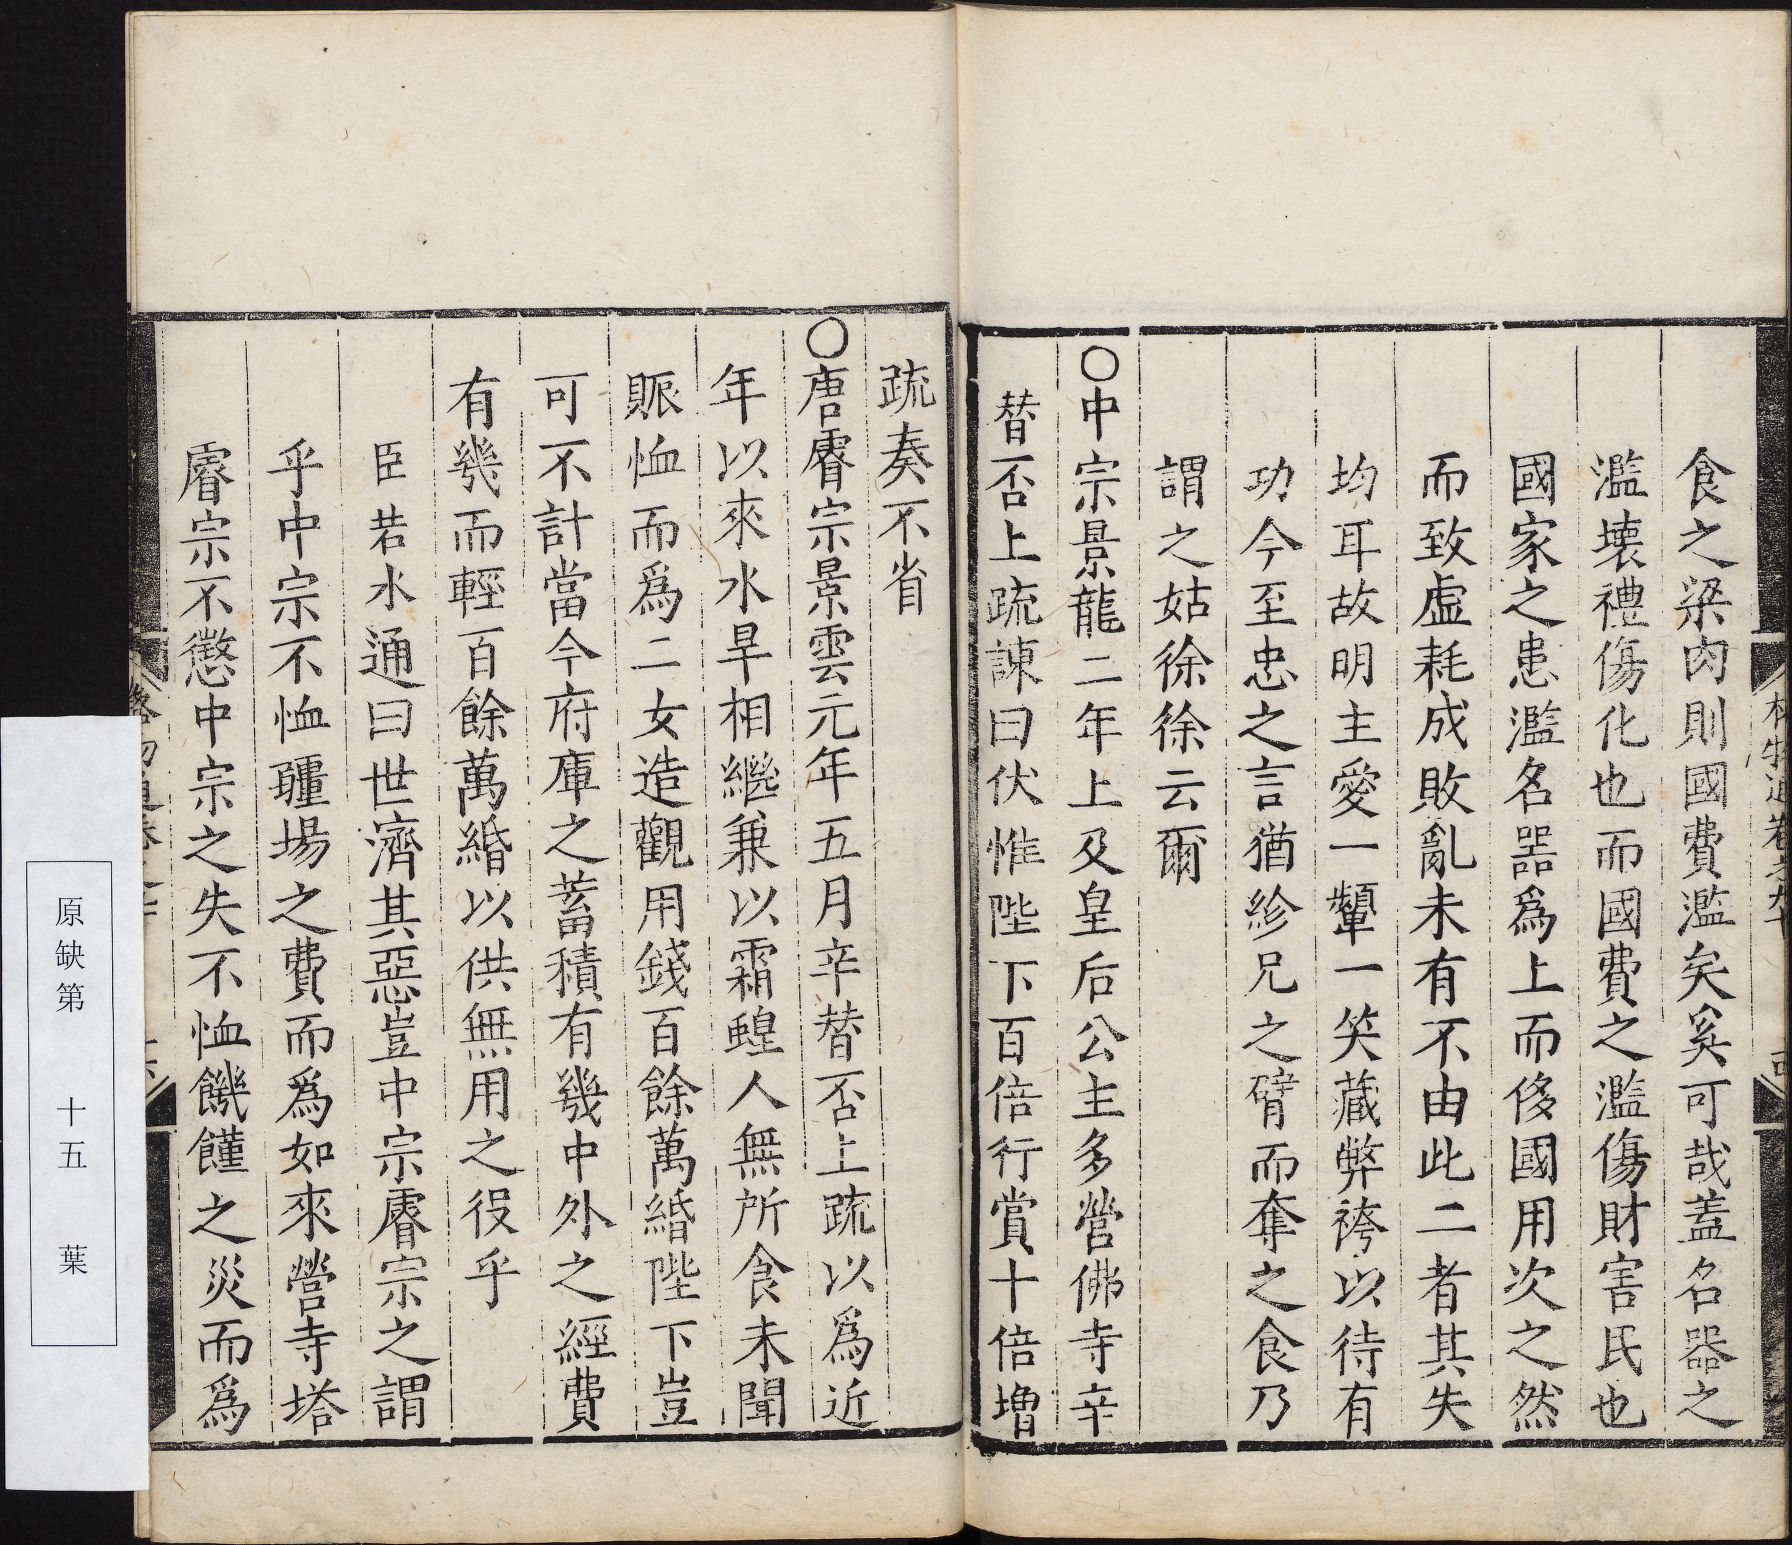 食之粱肉則國費濫矣奚可哉蓋名器之
濫壞禮傷化也而國費之濫傷財害民也
國家之患濫名器為上而侈國用次之然
而致虛耗成敗亂未有不由此二者其失
均耳故明主愛一顰一笑藏弊袴以待有
功今至忠之言猶紾兄之臂而奪之食乃
謂之姑徐徐云爾
○中宗景龍二年上及皇后公主多營佛寺辛
替否上疏諫曰伏惟陛下百倍行賞十倍增
疏奏不省
○唐睿宗景雲元年五月辛替否上疏以為近
年以來水旱相繼兼以霜蝗人無所食未聞
賑恤而為二女造觀用錢百餘萬緡陛下豈
可不計當今府庫之蓄積有幾中外之經費
有幾而輕百餘萬緡以供無用之役乎
臣若水通曰世濟其惡豈中宗睿宗之謂
乎中宗不恤疆場之費而為如來營寺塔
睿宗不懲中宗之失不恤饑饉之災而為
原缺第 十五 葉